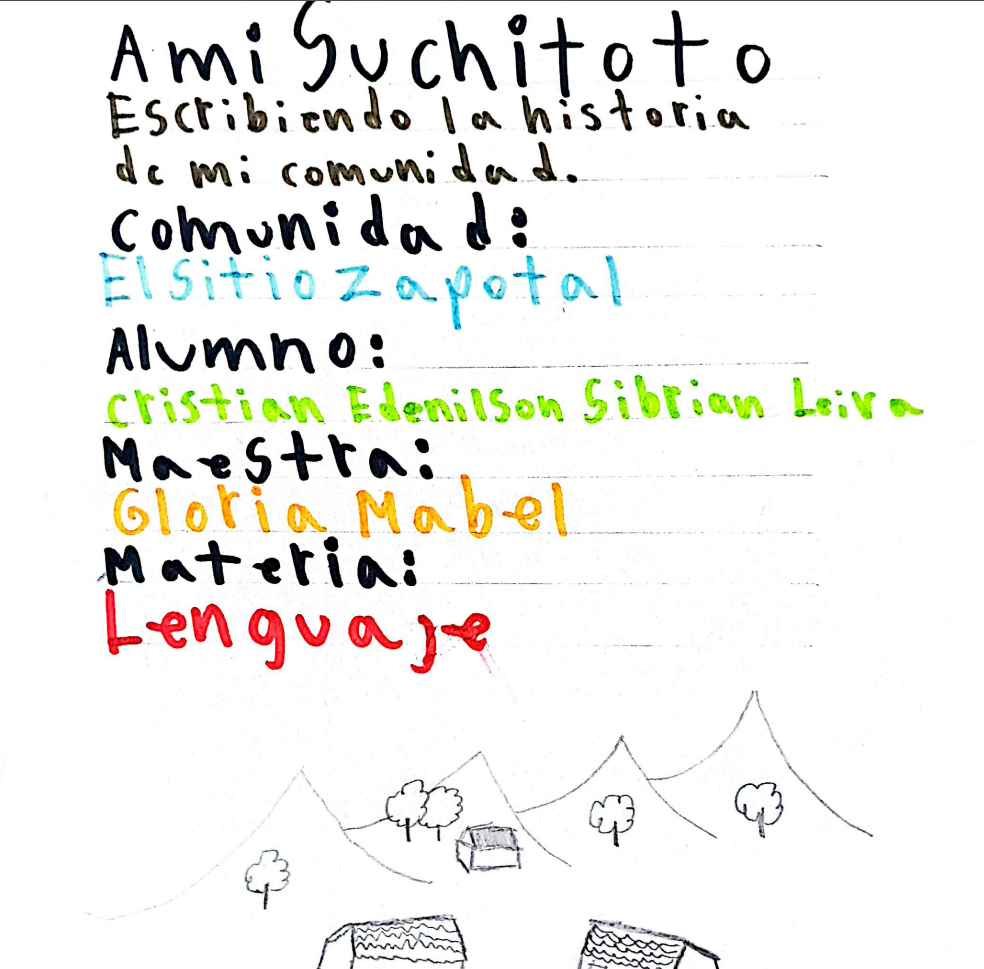 Ami Suchitoto
Escribiendo la historia
de mi comunidad.
Comunidad:
El sitio Zapotal
Alumno:
Cristian Edenilson Sibrian Leiva
Maestra:
Gloria Mabel
Materia:
Lenguaje